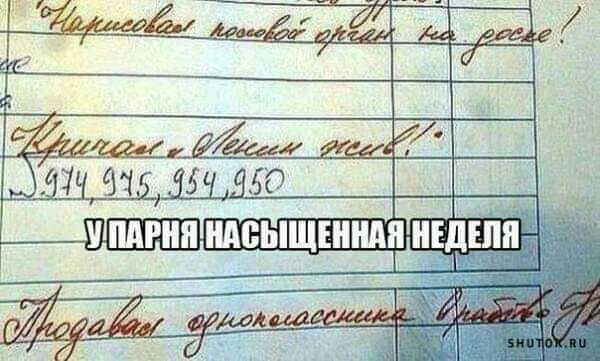 Нарисовал половой орган на доске!
Кричал „Ленин жив!"
974, 975, 954, 950
У ПАРНЯ НАСЫЩЕННАЯ НЕДЕЛЯ
Продавал одноклассника в рабство
SHUTOK.RU